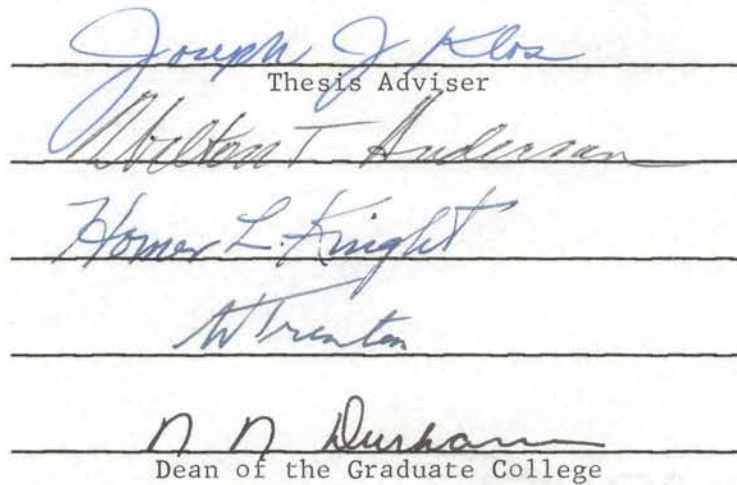 Joseph J Klos
Thesis Adviser
Wilton T Anderson
Homer L. Knight
W Trenton
N N Durham
Dean of the Graduate College